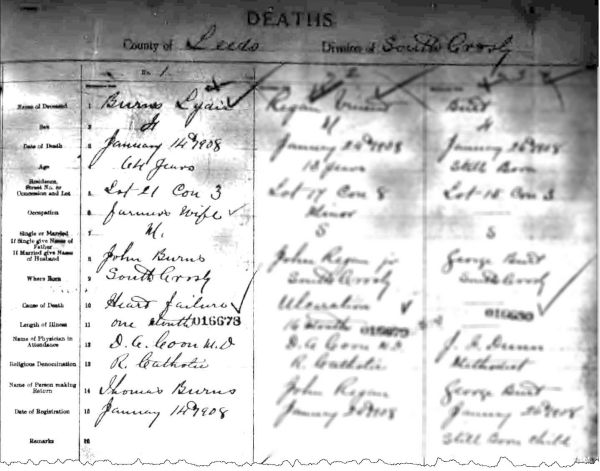 DEATHS
County of Leeds Division of South Crosby
No. 1
Name of Deceased 1 Burns Lydia Regan
Sex 2 H M H
Date of Death 3 January 14th 1908 January 24th 1908 January 26th 1908
Age 4 64 Years 13 years Still Born
Residence, Street No. or Concession and Lot 5 Lot 21 Con 3 Lot 17 Con 8 Lot 15 Con 3
Occupation 6 Farmers Wife Minor
Single or Married 7 M. S S
If Single give Name of Father
If Married give Name of Husband 8 John Burns John Regan jr George
Where Born 9 South Crosby South Crosby South Crosby
Cause of Death 10 Heart failure Ulceration 016680
Length of Illness 11 one Month 016678 Month 016679
Name of Physician in Attendance 12 D. A. Coon M.D D. A. Coon M.D J. F. Dunn
Religious Denomination 13 R. Catholic R. Catholic Methodist
Name of Person making Return 14 Thomas Burns John Regan George
Date of Registration 15 January 14th 1908 January 1908 January 26th 1908
Remarks 16 Still Born Child